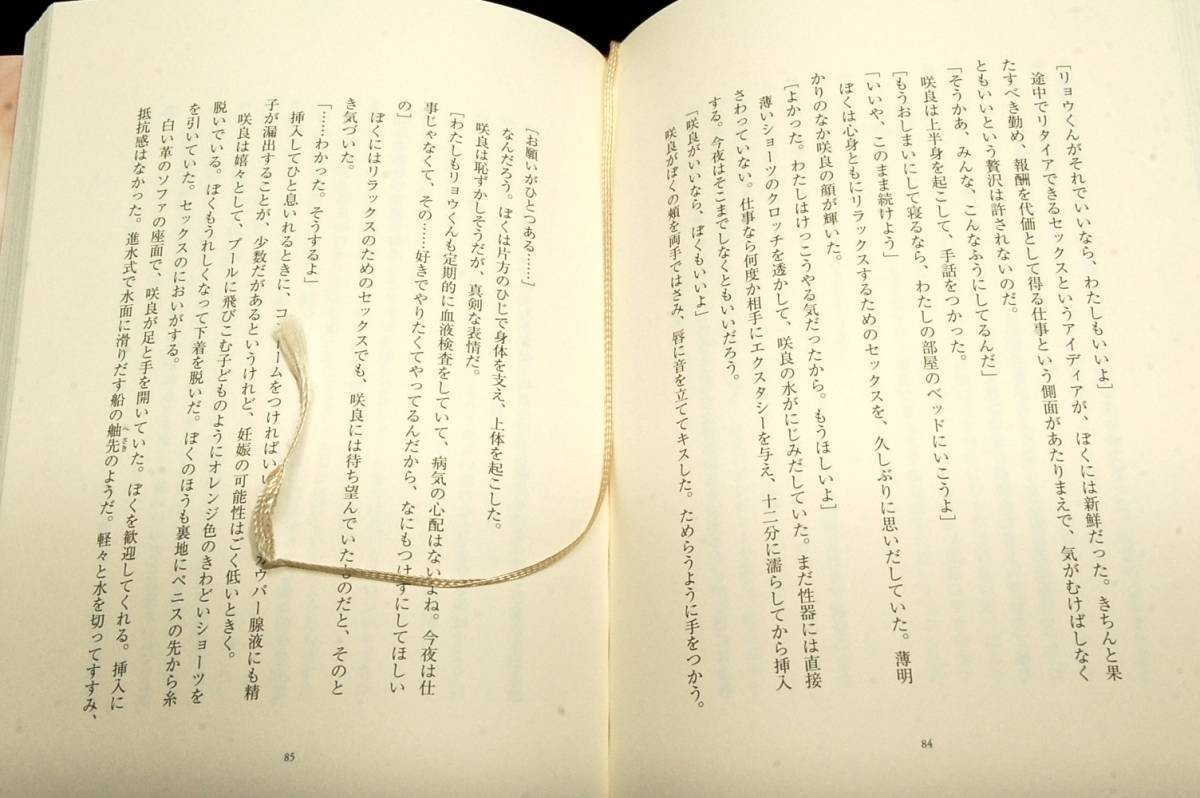 ［リョウくんがそれでいいなら、わたしもいいよ］
途中でリタイアできるセックスというアイディアが、ぼくには新鮮だった。きちんと果
たすべき勤め、報酬を代価として得る仕事という側面があたりまえで、気がむけばしなく
ともいいという贅沢は許されないのだ。
「そうかあ、みんな、こんなふうにしてるんだ」
咲良は上半身を起こして、手話をつかった。
［もうおしまいにして寝るなら、わたしの部屋のベッドにいこうよ］
「いいや、このまま続けよう」
ぼくは心身ともにリラックスするためのセックスを、久しぶりに思いだしていた。薄明
かりのなか咲良の顔が輝いた。
［よかった。わたしはけっこうやる気だったから。もうほしいよ］
薄いショーツのクロッチを透かして、咲良の水がにじみだしていた。まだ性器には直接
さわっていない。仕事なら何度か相手にエクスタシーを与え、十二分に濡らしてから挿入
する。今夜はそこまでしなくともいいだろう。
「咲良がいいなら、ぼくもいいよ」
咲良がぼくの頬を両手ではさみ、唇に音を立ててキスした。ためらうように手をつかう。
84
［お願いがひとつある……］
なんだろう。ぼくは片方のひじで身体を支え、上体を起こした。
咲良は恥ずかしそうだが、真剣な表情だ。
［わたしもリョウくんも定期的に血液検査をしていて、病気の心配はないよね。今夜は仕
事じゃなくて、その……好きでやりたくてやってるんだから、なにもつけずにしてほしい
の］
ぼくにはリラックスのためのセックスでも、咲良には待ち望んでいたものだと、そのと
き気づいた。
「……わかった。そうするよ」
挿入してひと息いれるときに、コ ームをつければい ウパー腺液にも精
子が漏出することが、少数だがあるというけれど、妊娠の可能性はごく低いときく。
咲良は嬉々として、プールに飛びこむ子どものようにオレンジ色のきわどいショーツを
脱いでいる。ぼくもうれしくなって下着を脱いだ。ぼくのほうも裏地にペニスの先から糸
を引いていた。セックスのにおいがする。
白い革のソファの座面で、咲良が足と手を開いていた。ぼくを歓迎してくれる。挿入に
抵抗感はなかった。進水式で水面に滑りだす船の舳先のようだ。軽々と水を切ってすすみ、
へさき
85